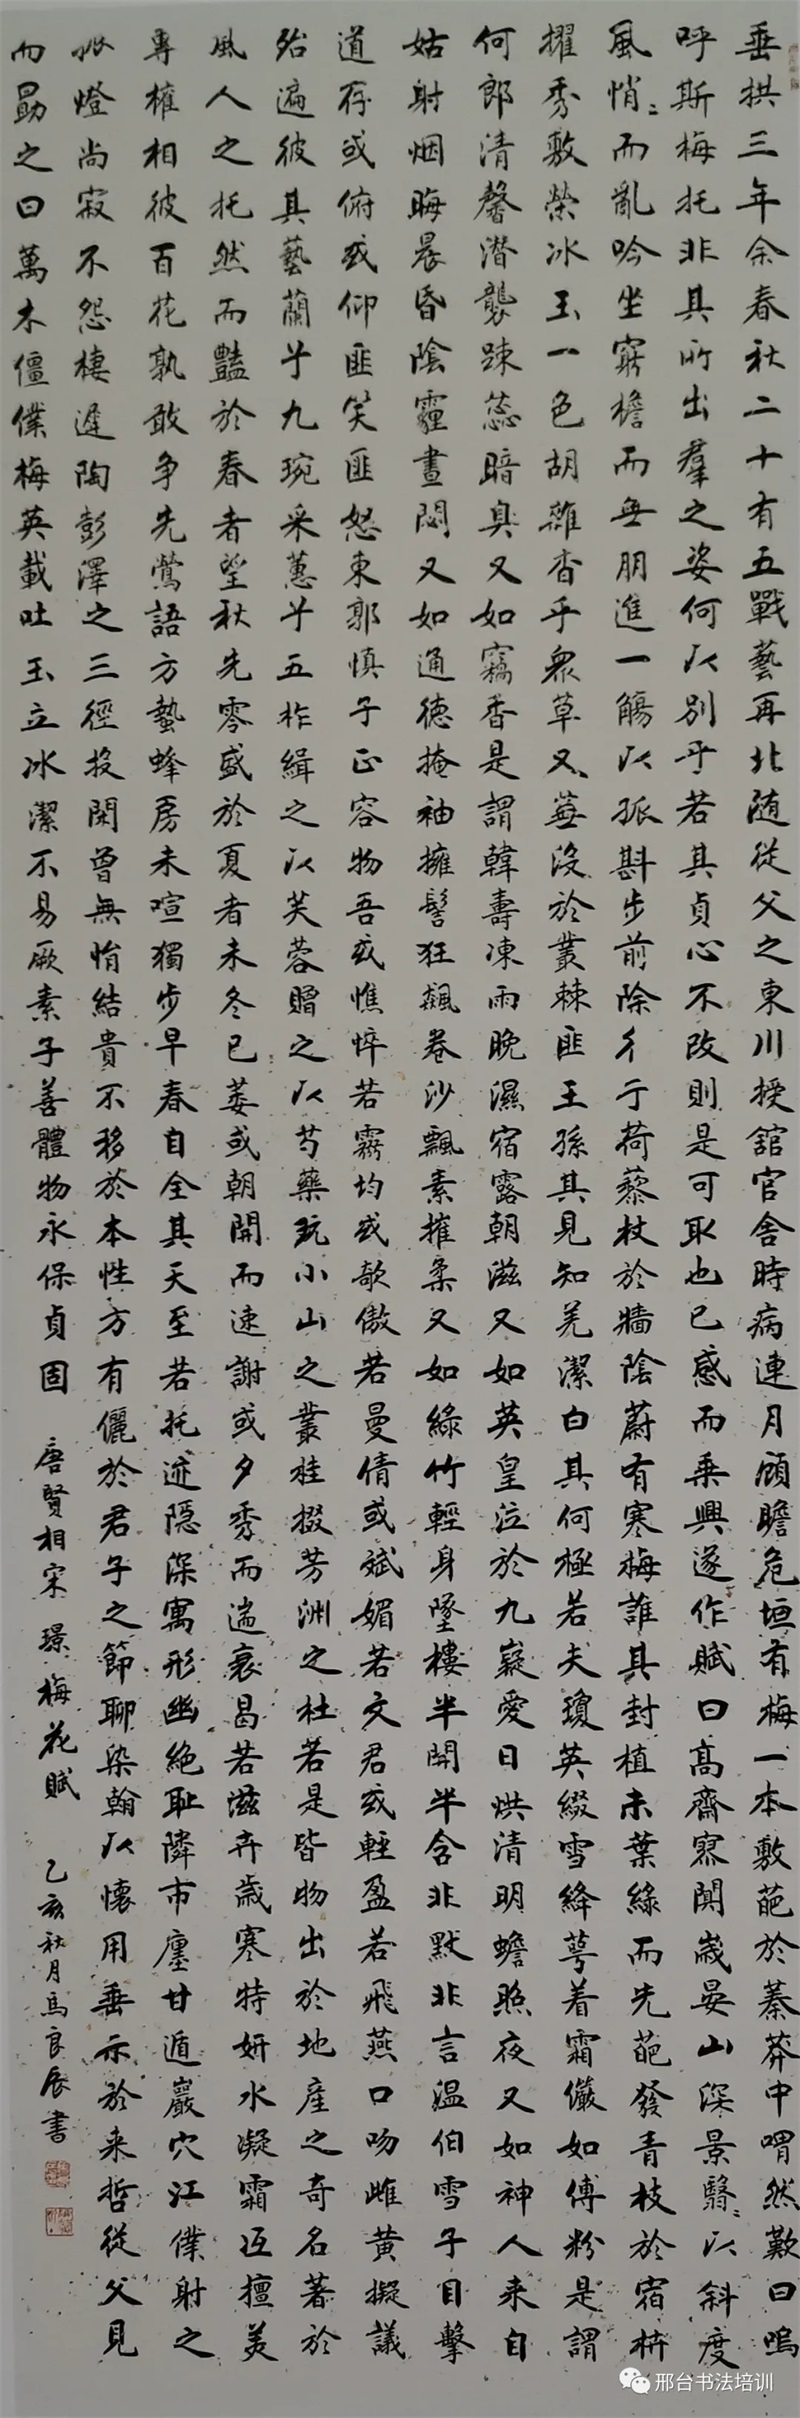 垂拱三年余春秋二十有五戰藝再北随從父之東川授舘官舍時病連月顧瞻危垣有梅一本敷葩於蓁莽中喟然歎曰嗚
呼斯梅托非其所出羣之姿何以别乎若其貞心不改則是可取也已感而乘興遂作賦曰高齋寥闃嵗晏山深景翳翳以斜度
風悄悄而亂吟坐窮檐而無朋進一觴以孤斟步前除彳亍荷藜杖於牆陰蔚有寒梅誰其封植未葉綠而先葩發青枝於宿枿
擢秀敷榮冰玉一色胡雜杳乎衆草又蕪没於叢棘匪王孫其見知羌潔白其何極若夫瓊英綴雪絳萼着霜儼如傅粉是謂
何郎清馨潜襲踈蕊暗臭又如竊香是謂韓壽凍雨晚濕宿露朝滋又如英皇泣於九嶷愛日烘清明蟾照夜又如神人来自
姑射烟晦晨昏陰霾晝閟又如通德掩袖擁髻狂飆卷沙飄素摧柔又如綠竹輕身墜樓半開半含非默非言温伯雪子目擊
道存或俯或仰匪笑匪怒東郭慎子正容物吾或憔悴若靈均或欹傲若曼倩或娬媚若文君或輕盈若飛燕口吻雌黄擬議
殆遍彼其藝蘭兮九琬采蕙兮五柞緝之以芙蓉贈之以芍藥玩小山之叢桂掇芳洲之杜若是皆物出於地産之奇名著於
風人之托然而豔於春者望秋先零盛於夏者未冬已萎或朝開而速謝或夕秀而遄衰曷若滋卉歲寒特妍水凝霜冱擅美
專權相彼百花孰敢争先鶯語方蟄蜂房未喧獨步早春自全其天至若托迹隱深寓形幽絶耻隣市廛甘遁巖穴江僕射之
孤燈尚寂不怨棲遲陶彭澤之三徑投閑曾無悁結貴不移於本性方有儷於君子之節聊染翰以懷用垂示於来哲從父見
而勗之曰萬木僵僕梅英載吐玉立冰潔不易厥素子善體物永保貞固
唐賢相宋璟梅花賦
乙亥秋月馬良辰書
邢台书法培训